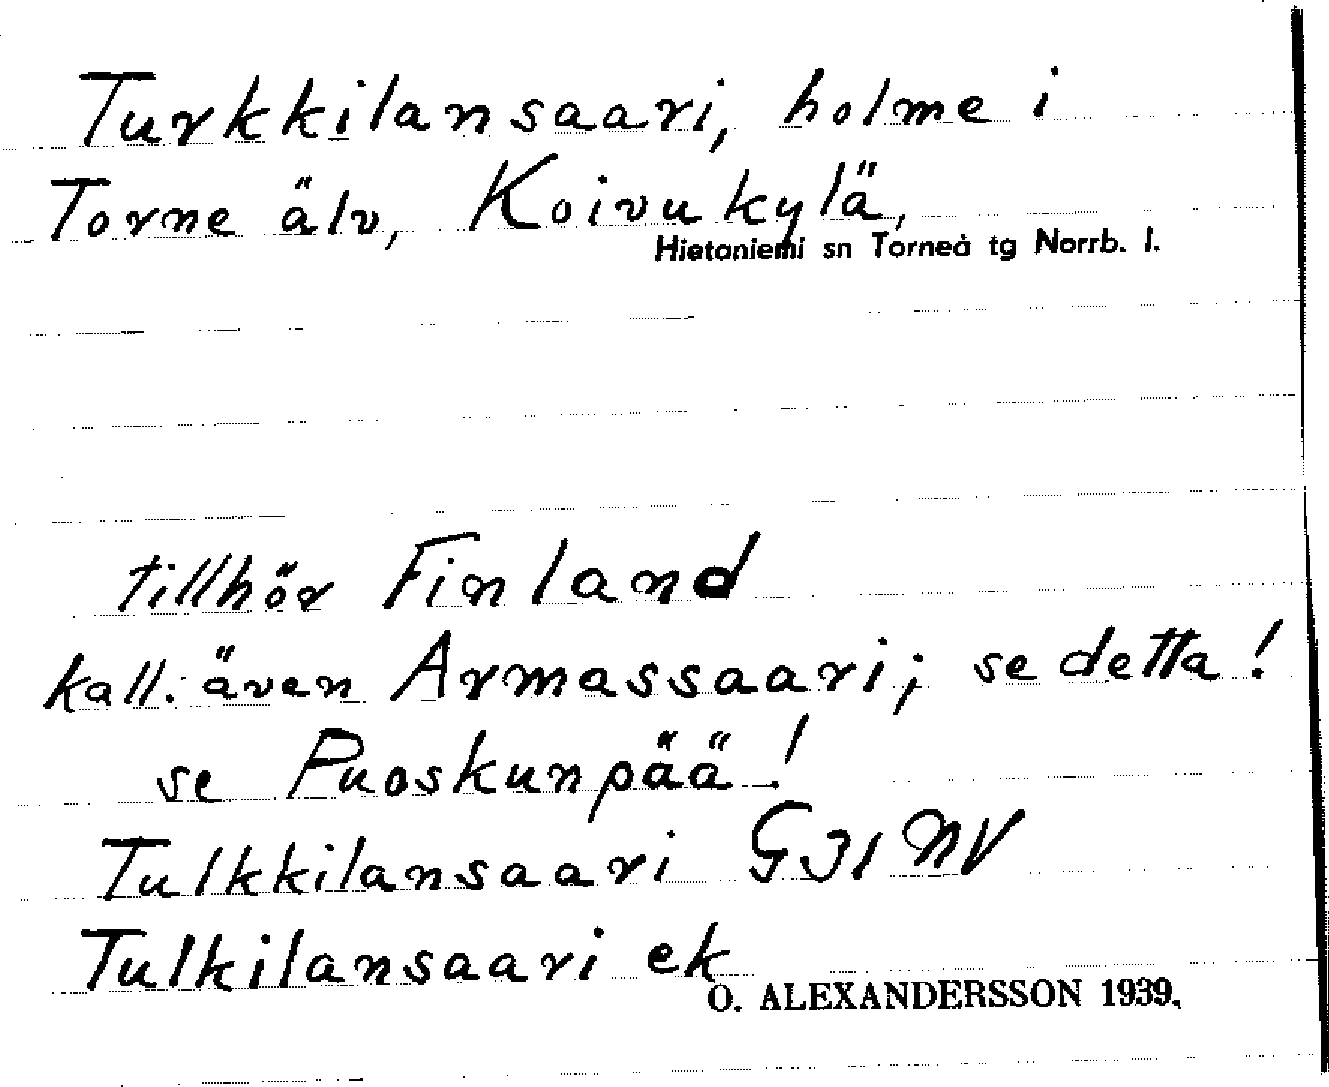 Turkkilansaari, holme i
Torne älv, Koivukylä,
Hietaniemi sn Torneå tg Norrb. l.
tillhör Finland
kall. även Armassaari; se detta!
se Puoskunpää!
Tulkkilansaari G31NV
Tulkilansaari ek
O. ALEXANDERSSON 1939.